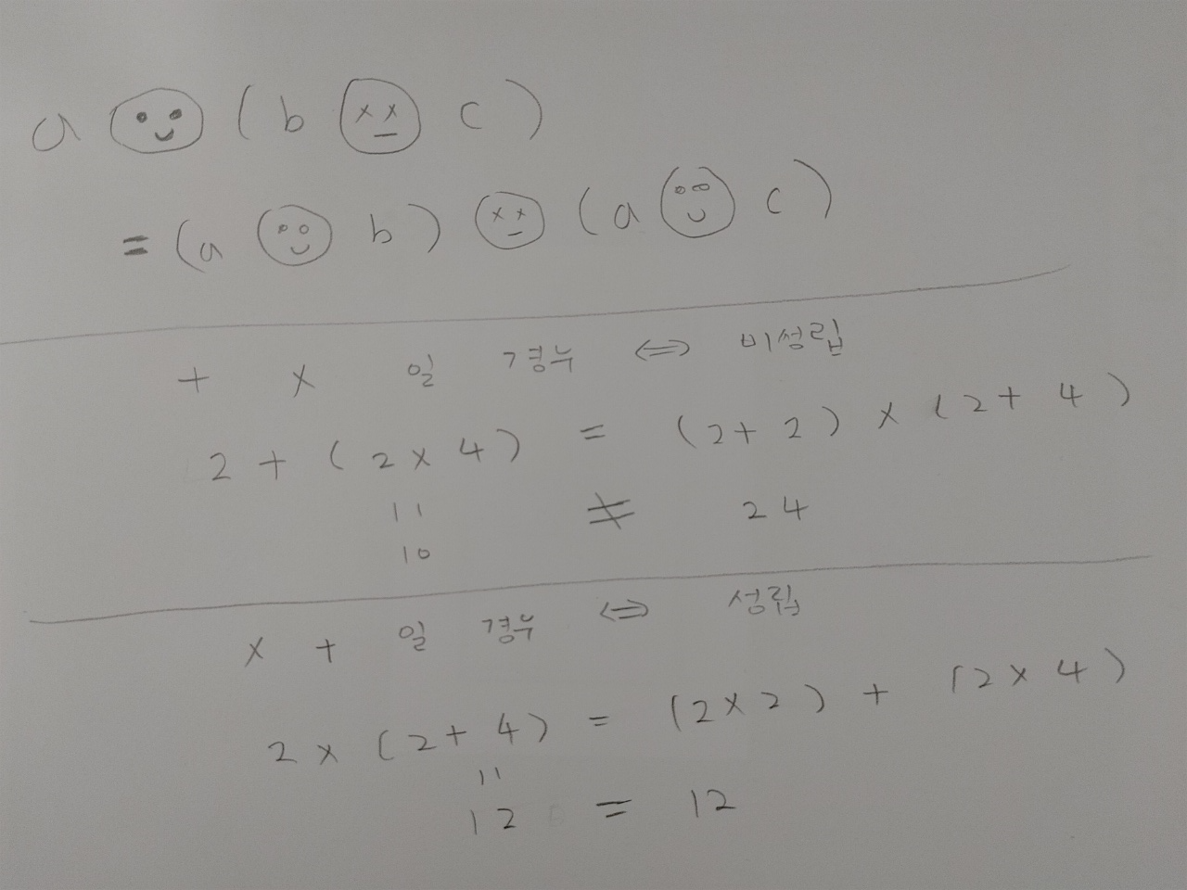 a ☺ ( b ☹ c )
= ( a ☺ b ) ☹ ( a ☺ c )
+ × 일 경우 ⇔ 비성립
2 + ( 2 × 4 ) = ( 2 + 2 ) × ( 2 + 4 )
11 ≠ 24
10
× + 일 경우 ⇔ 성립
2 × ( 2 + 4 ) = ( 2 × 2 ) + ( 2 × 4 )
11
12 = 12